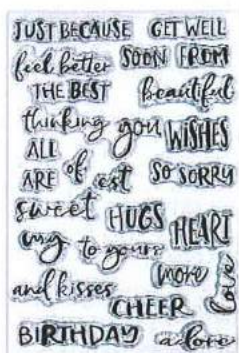 JUST BECAUSE GET WELL
feel better SOON FROM
THE BEST beautiful
thinking you WISHES
ALL of
ARE est SO SORRY
sweet HUGS HEART
my to yours
and kisses more love
CHEER
BIRTHDAY a love